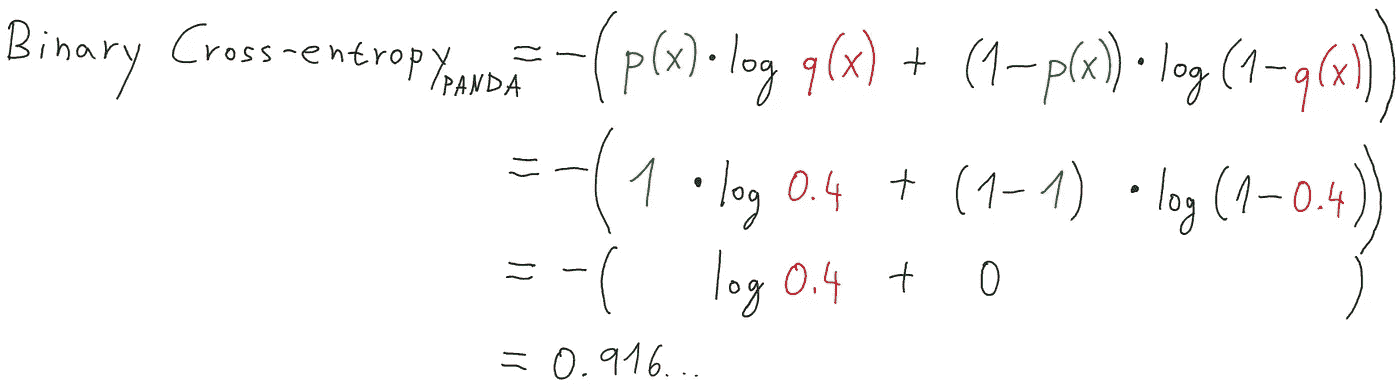 Binary Cross-entropy PANDA = -(p(x) · log q(x) + (1-p(x)) · log (1-q(x)))
= -(1 · log 0.4 + (1-1) · log (1-0.4))
= -( log 0.4 + 0 )
= 0.916...